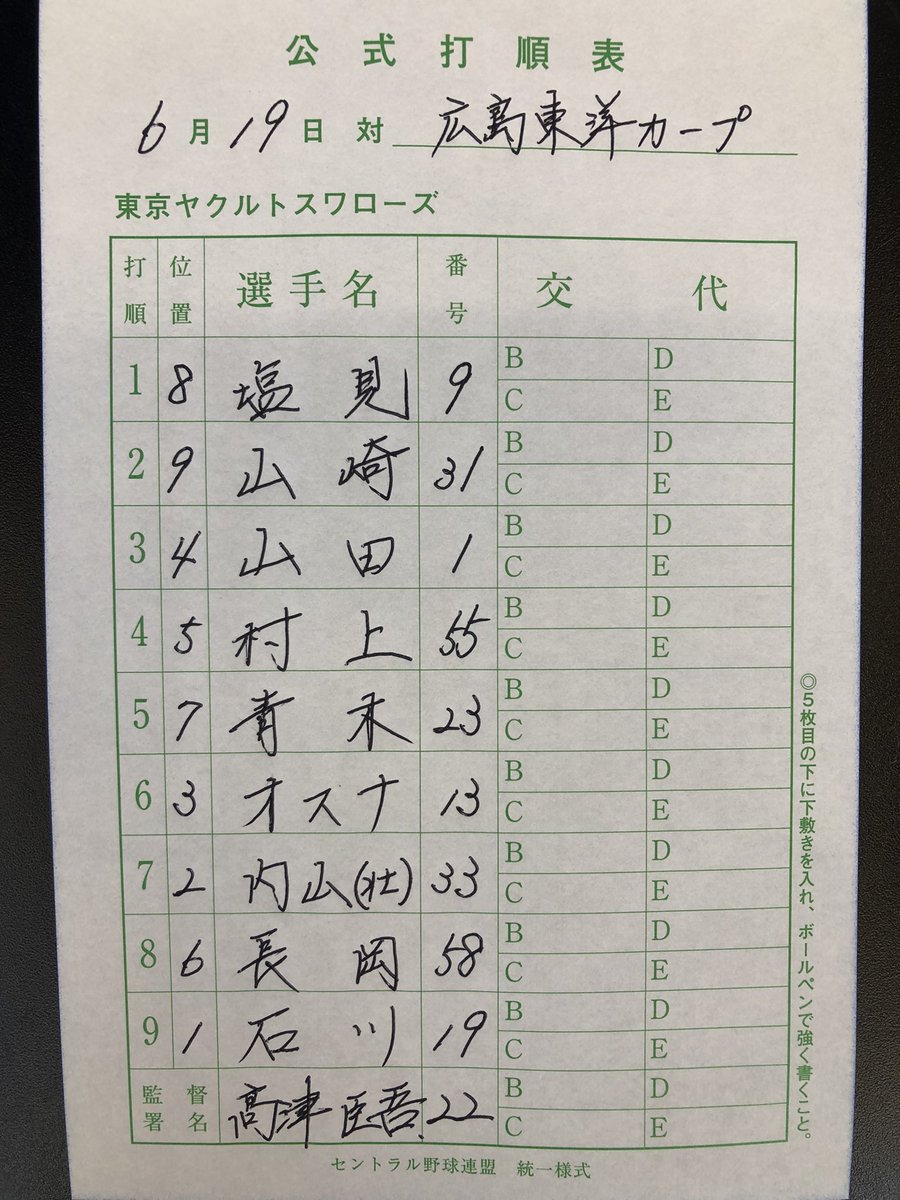 公式打順表
6月19日 対 広島東洋カープ
東京ヤクルトスワローズ
打順 位置 選手名 番号 交代
1 8 塩見 9 B D C E
2 9 山崎 31 B D C E
3 4 山田 1 B D C E
4 5 村上 55 B D C E
5 7 青木 23 B D C E
6 3 オスナ 13 B D C E
7 2 内山(壮) 33 B D C E
8 6 長岡 58 B D C E
9 1 石川 19 B D C E
監督署名 高津臣吾 22 B D C E
◎5枚目の下に下敷きを入れ、ボールペンで強く書くこと。
セントラル野球連盟 統一様式